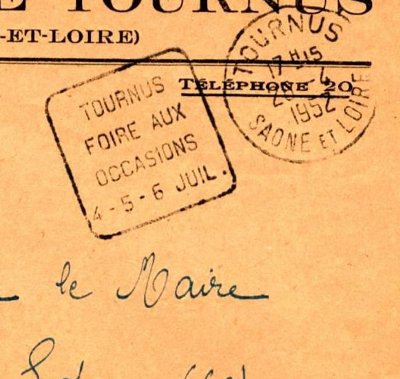 TOURNUS
-ET-LOIRE)
TÉLÉPHONE 20
TOURNUS
FOIRE AUX
OCCASIONS
4-5-6 JUIL.
TOURNUS
17H15
1952
SAONE ET LOIRE
le Maire